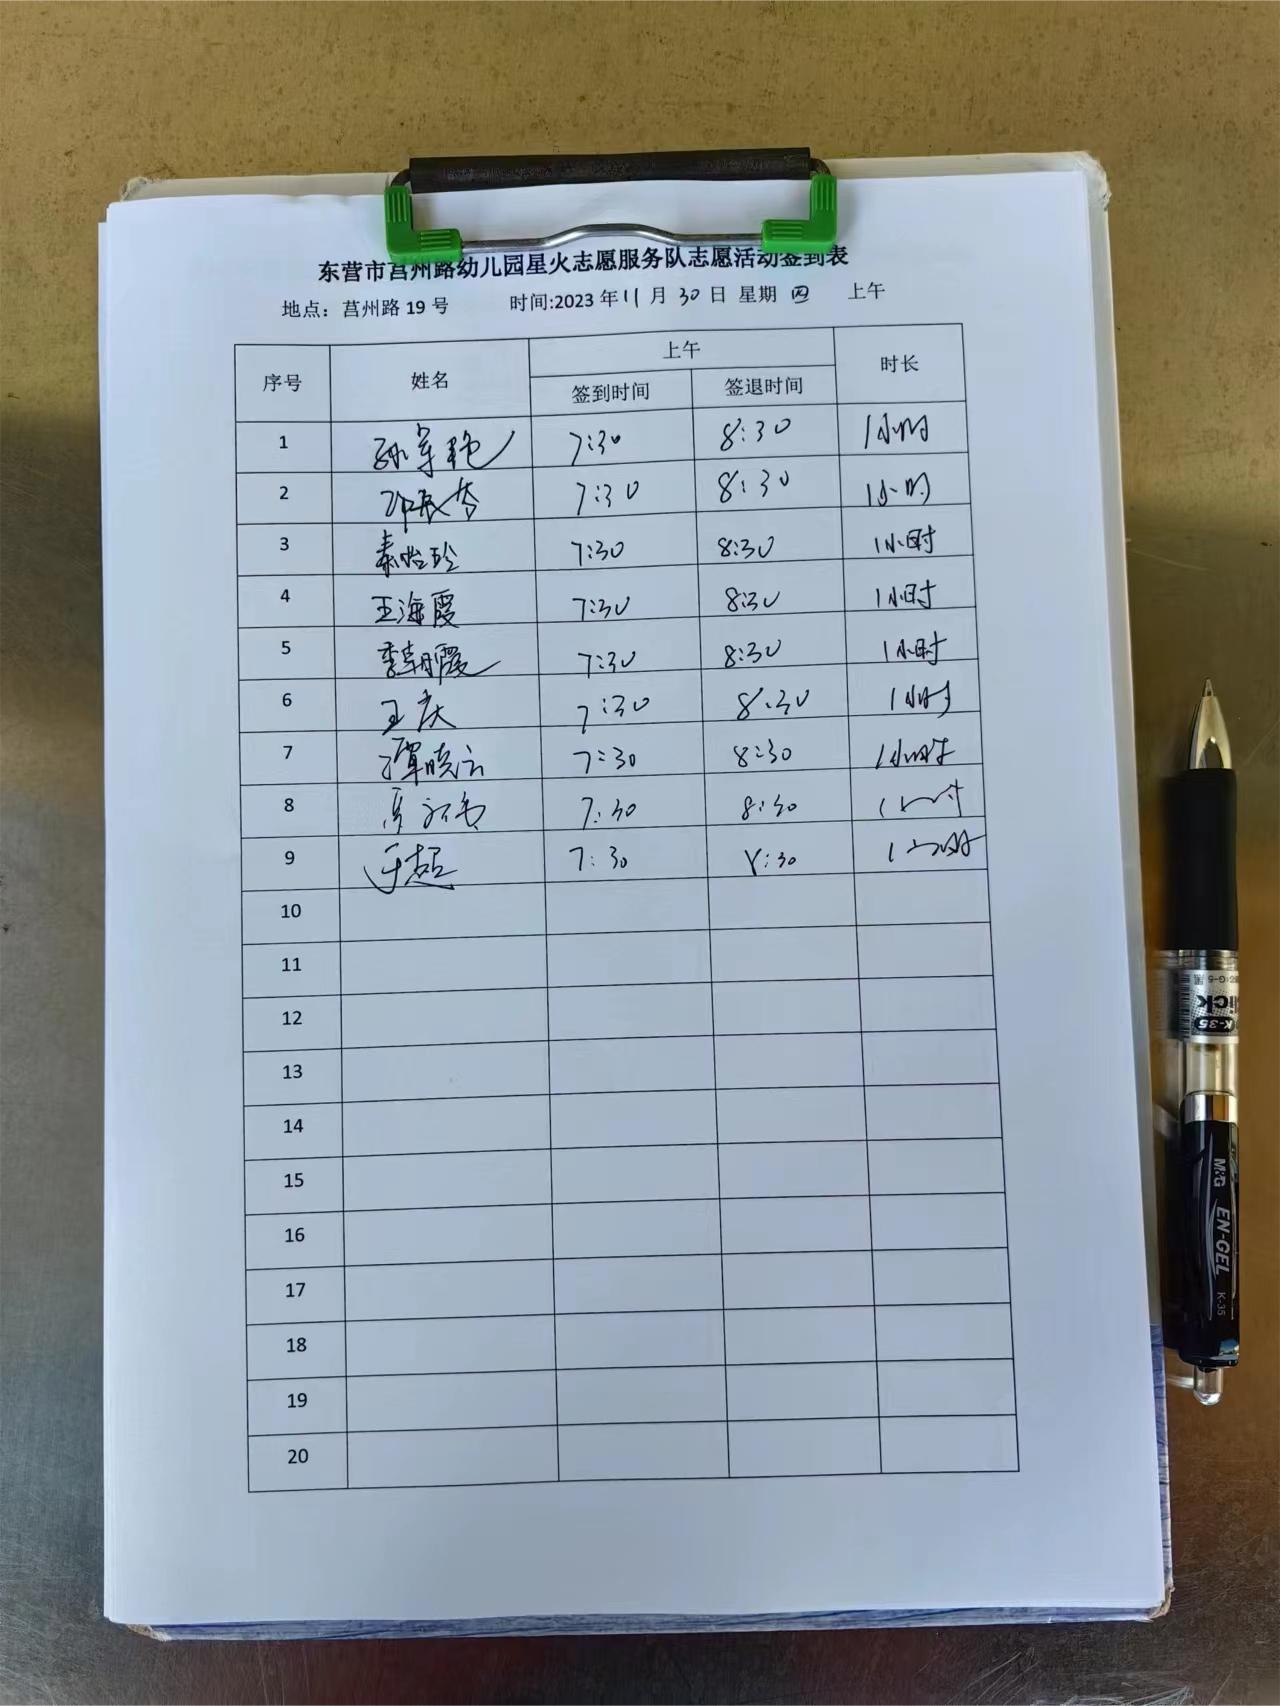 东营市莒州路幼儿园星火志愿服务队志愿活动签到表
地点：莒州路 19 号 时间:2023 年 11 月 30 日 星期 四 上午
序号 姓名 上午 时长
签到时间 签退时间
1 7:30 8:30 1小时
2 7:30 8:30 1小时
3 秦怡玲 7:30 8:30 1小时
4 王海霞 7:30 8:30 1小时
5 李朝霞 7:30 8:30 1小时
6 王庆 7:30 8:30 1小时
7 谭晓云 7:30 8:30 1小时
8 7:30 8:30 1小时
9 于超 7:30 8:30 1小时
10
11
12
13
14
15
16
17
18
19
20
K-35
M&G EN-GEL K-35